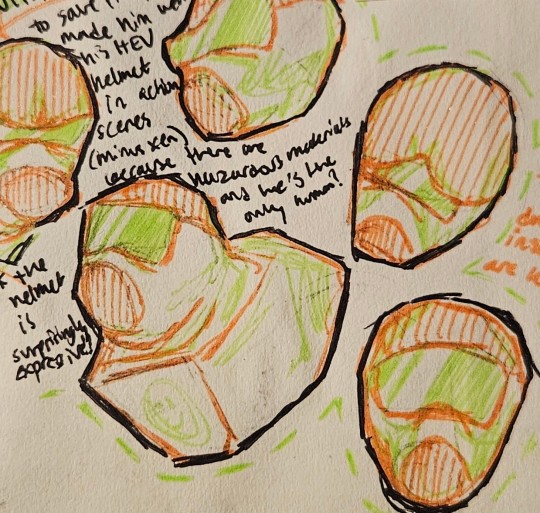 to save
made him
his HEV
helmet
in action
scenes
(minus xen)
because there are
hazardous materials
and he's the
only human?
the
helmet
is
surprisingly
expressive!
are